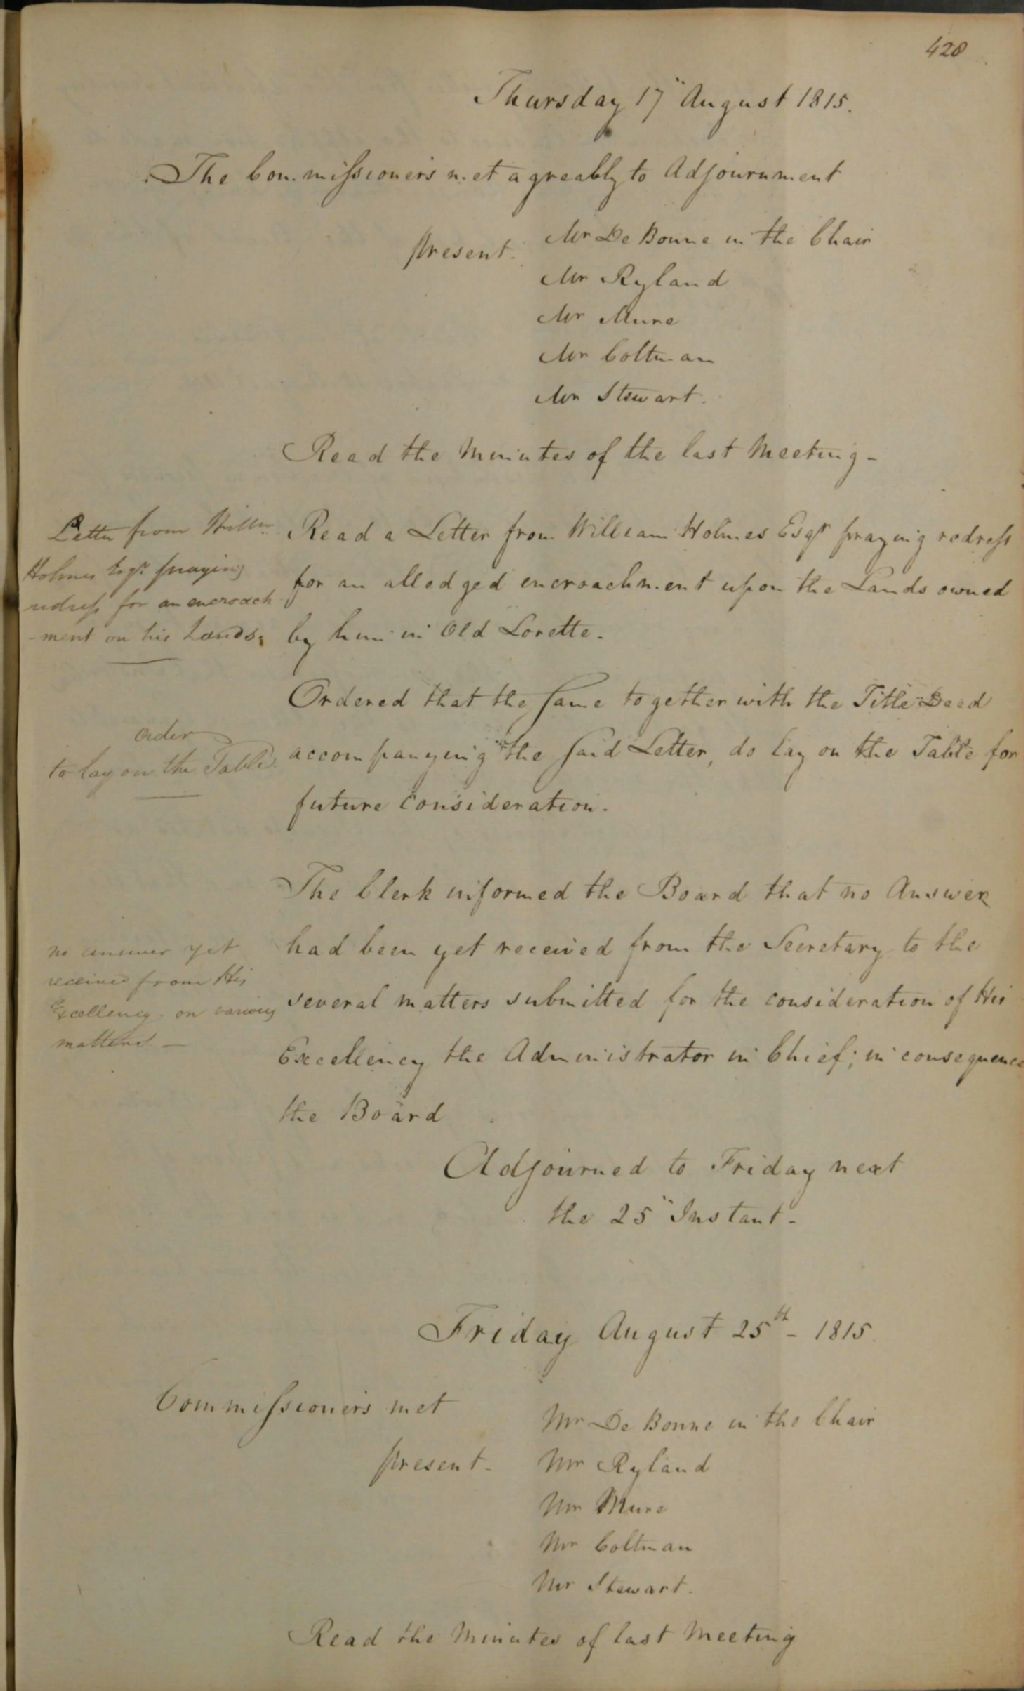 428
Thursday 17" August 1815.
The Commissioners met agreably to Adjournment
present. Mr De Bonne in the Chair
Mr Ryland
Mr Mure
Mr Coltman
Mr Stewart.
Read the Minutes of the last Meeting -
Letter from Willm
Holmes Esqr praying
redress for an encroach
-ment on his Lands.
Read a Letter from William Holmes Esqr praying redress
for an alledged encroachment upon the Lands owned
by him in Old Lorette.
order
to lay on the Table
Ordered that the same together with the Title Deed
accompanying the said Letter, do lay on the Table for
future consideration.
no answer yet
received from His
Excellency on various
matters -
The Clerk informed the Board that no Answer
had been yet received from the Secretary to the
several matters submitted for the consideration of His
Excellency the Administrator in Chief; in consequence
the Board
Adjourned to Friday next
the 25" Instant -
Friday August 25th - 1815
Commissioners met
present - Mr De Bonne in the Chair
Mr Ryland
Mr Mure
Mr Coltman
Mr Stewart.
Read the Minutes of last Meeting